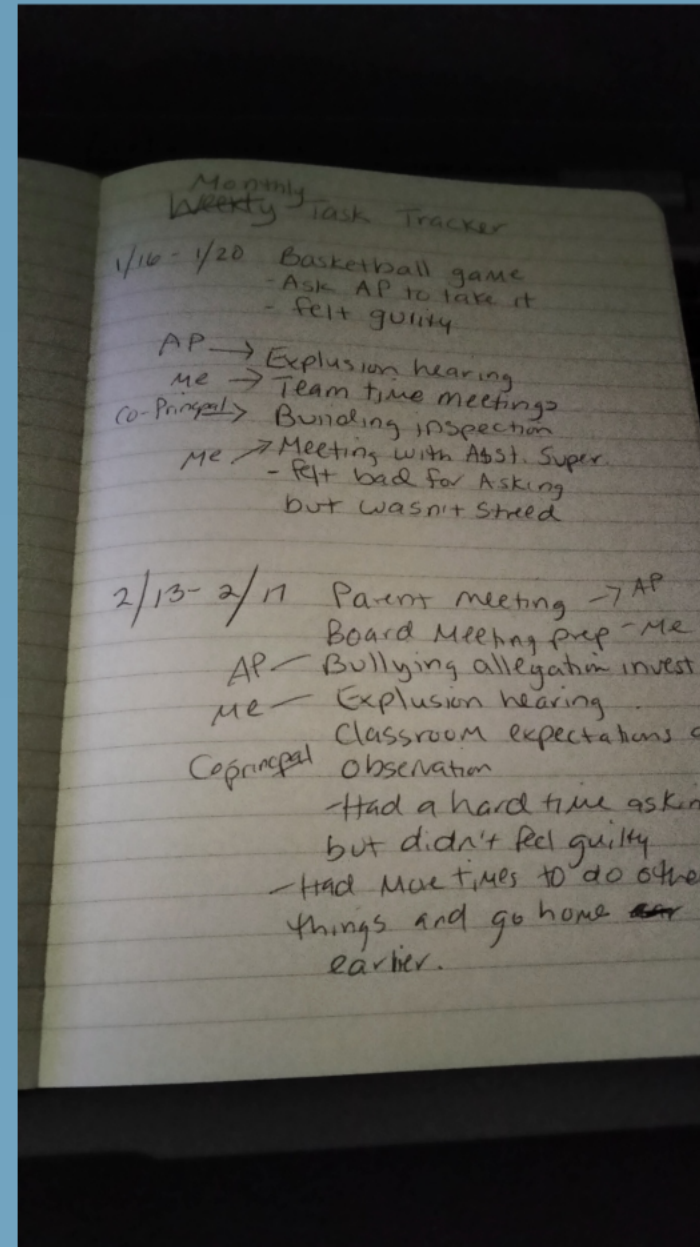 Monthly
Weekly Task Tracker
1/16 - 1/20 Basketball game
- Ask AP to take it
- felt guility
AP → Explusion hearing
Me → Team time meetings
Co-Principal → Building inspection
Me → Meeting with Asst. Super.
- felt bad for Asking
but wasn't streed
2/13 - 2/17 Parent meeting → AP
Board Meeting prep - Me
AP — Bullying allegation invest
Me — Explusion hearing
Classroom expectations
Coprincpal Observation
- Had a hard time askin
but didn't feel guilty
- Had more times to do othe
things and go home
earlier.